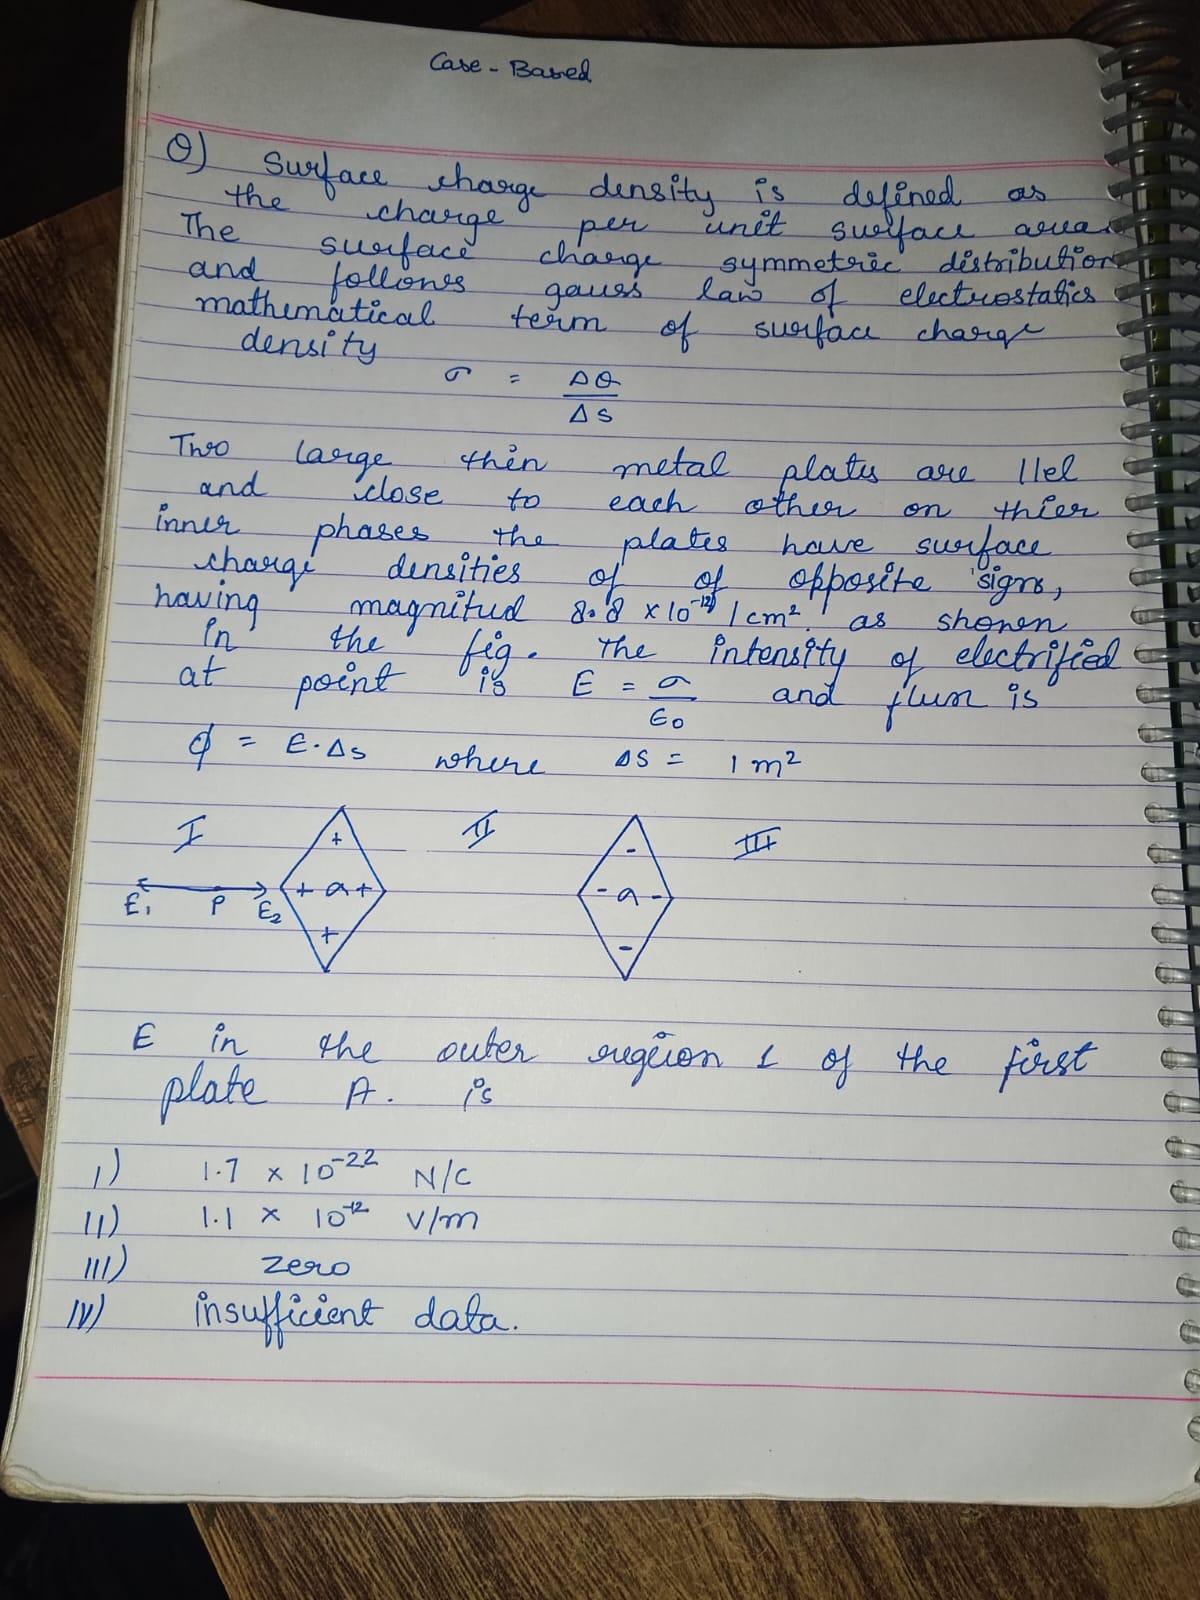 Case-Based
Q) Surface charge density is defined as
the charge per unit surface area.
The surface charge symmetric distribution
and follows gauss law of electrostatics
mathematical term of surface charge
density
σ = ΔQ
ΔS
Two large thin metal plates are llel
and close to each other on thier
inner phases the plates have surface
charge densities of of opposite signs,
having magnitud 8.8 × 10⁻¹² / cm². as shown
in the fig. The intensity of electrified
at point is E = σ and flux is
ε₀
ϕ = E·ΔS where ΔS = 1 m²
I + II - III
+ σ + - σ -
E₁ P E₂
+ -
E in the outer region 1 of the first
plate A. is
I) 1.7 × 10⁻²² N/C
II) 1.1 × 10⁻¹² V/m
III) zero
IV) insufficient data.